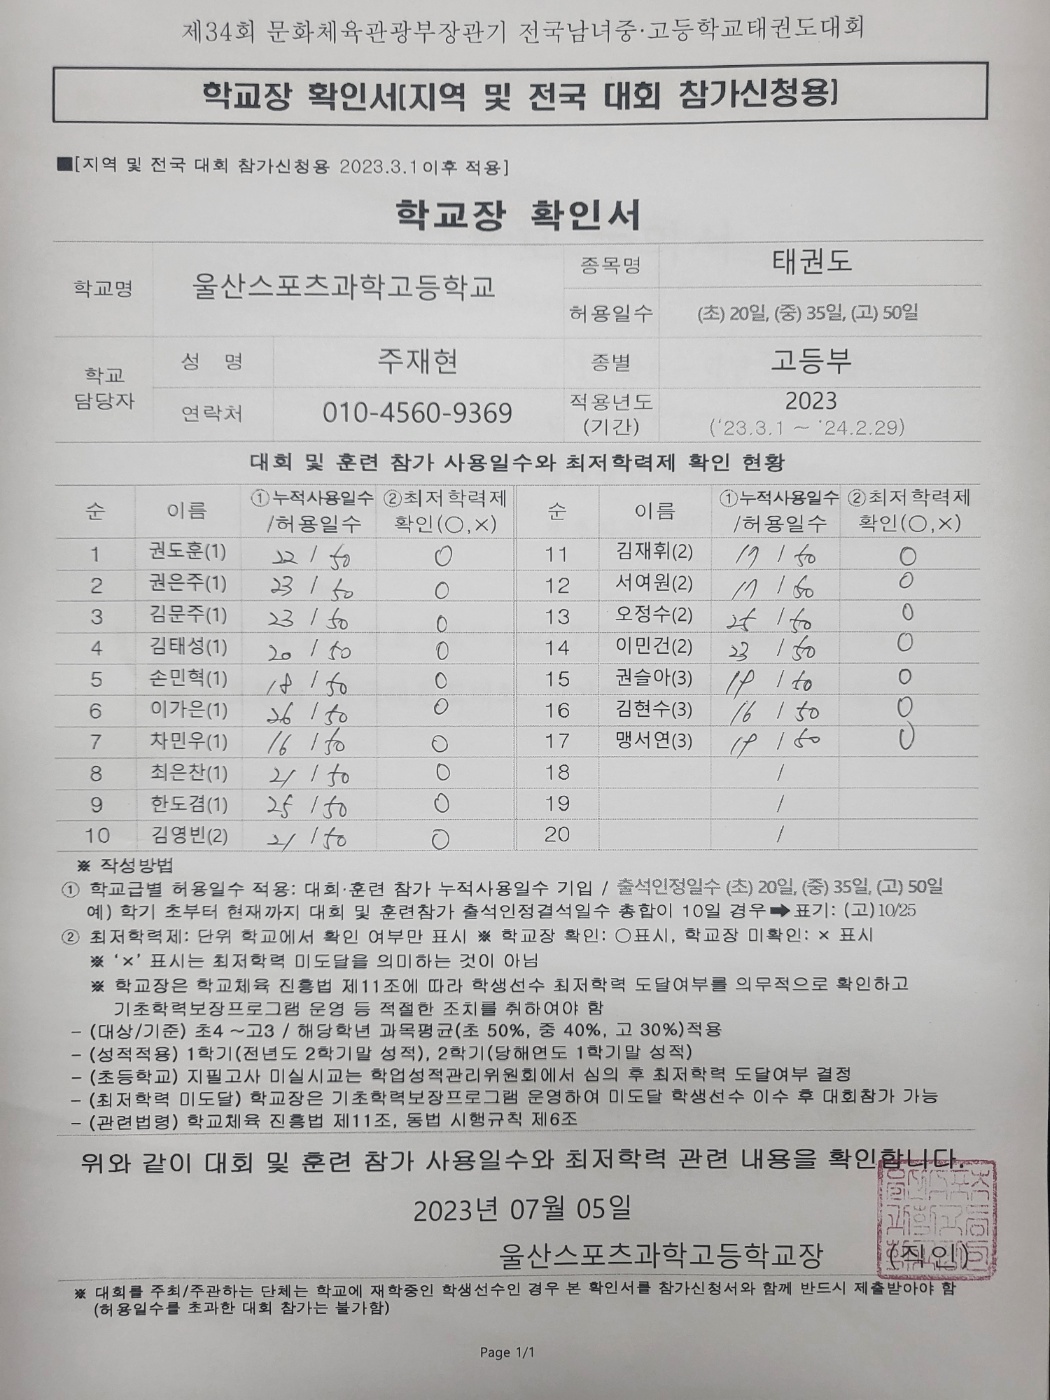 제34회 문화체육관광부장관기 전국남녀중·고등학교태권도대회
학교장 확인서[지역 및 전국 대회 참가신청용]
■[지역 및 전국 대회 참가신청용 2023.3.1이후 적용]
학교장 확인서
학교명 울산스포츠과학고등학교 종목명 태권도
허용일수 (초) 20일, (중) 35일, (고) 50일
학교 담당자 성 명 주재현 종별 고등부
연락처 010-4560-9369 적용년도 (기간) 2023 ('23.3.1 ~ '24.2.29)
대회 및 훈련 참가 사용일수와 최저학력제 확인 현황
순 이름 ①누적사용일수 /허용일수 ②최저학력제 확인(○,×) 순 이름 ①누적사용일수 /허용일수 ②최저학력제 확인(○,×)
1 권도훈(1) 22 / 50 ○ 11 김재휘(2) 17 / 50 ○
2 권은주(1) 23 / 50 ○ 12 서여원(2) 17 / 50 ○
3 김문주(1) 23 / 50 ○ 13 오정수(2) 25 / 50 ○
4 김태성(1) 20 / 50 ○ 14 이민건(2) 23 / 50 ○
5 손민혁(1) 18 / 50 ○ 15 권슬아(3) 19 / 50 ○
6 이가은(1) 26 / 50 ○ 16 김현수(3) 16 / 50 ○
7 차민우(1) 16 / 50 ○ 17 맹서연(3) 19 / 50 ○
8 최은찬(1) 21 / 50 ○ 18 /
9 한도겸(1) 25 / 50 ○ 19 /
10 김영빈(2) 21 / 50 ○ 20 /
※ 작성방법
① 학교급별 허용일수 적용: 대회·훈련 참가 누적사용일수 기입 / 출석인정일수 (초) 20일, (중) 35일, (고) 50일
예) 학기 초부터 현재까지 대회 및 훈련참가 출석인정결석일수 총합이 10일 경우➡표기: (고)10/25
② 최저학력제: 단위 학교에서 확인 여부만 표시 ※ 학교장 확인: ○표시, 학교장 미확인: × 표시
※ '×' 표시는 최저학력 미도달을 의미하는 것이 아님
※ 학교장은 학교체육 진흥법 제11조에 따라 학생선수 최저학력 도달여부를 의무적으로 확인하고
기초학력보장프로그램 운영 등 적절한 조치를 취하여야 함
- (대상/기준) 초4 ~고3 / 해당학년 과목평균(초 50%, 중 40%, 고 30%)적용
- (성적적용) 1학기(전년도 2학기말 성적), 2학기(당해연도 1학기말 성적)
- (초등학교) 지필고사 미실시교는 학업성적관리위원회에서 심의 후 최저학력 도달여부 결정
- (최저학력 미도달) 학교장은 기초학력보장프로그램 운영하여 미도달 학생선수 이수 후 대회참가 가능
- (관련법령) 학교체육 진흥법 제11조, 동법 시행규칙 제6조
위와 같이 대회 및 훈련 참가 사용일수와 최저학력 관련 내용을 확인합니다.
2023년 07월 05일
울산스포츠과학고등학교장 (직인)
※ 대회를 주최/주관하는 단체는 학교에 재학중인 학생선수인 경우 본 확인서를 참가신청서와 함께 반드시 제출받아야 함
(허용일수를 초과한 대회 참가는 불가함)
Page 1/1